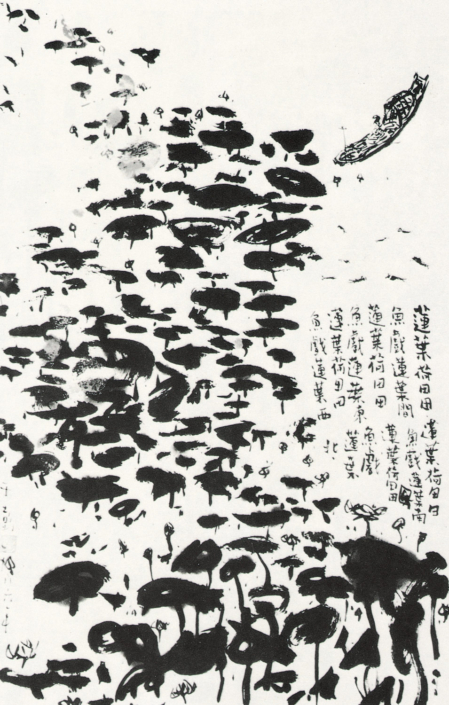 蓮葉荷田田
魚戲蓮葉間
蓮葉荷田田
魚戲蓮葉東
蓮葉荷田田
魚戲蓮葉西
蓮葉荷田田
魚戲蓮葉南
蓮葉荷田田
魚戲
蓮葉
北